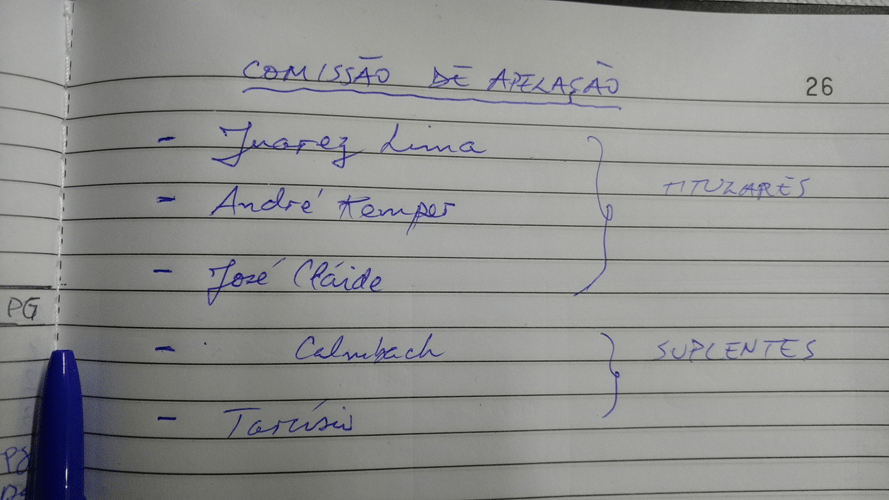 COMISSÃO DE APELAÇÃO
26
- Juarez Lima
- André Kemper
TITULARES
- José Cláide
PG
- Calmbach
SUPLENTES
- Tarcísio